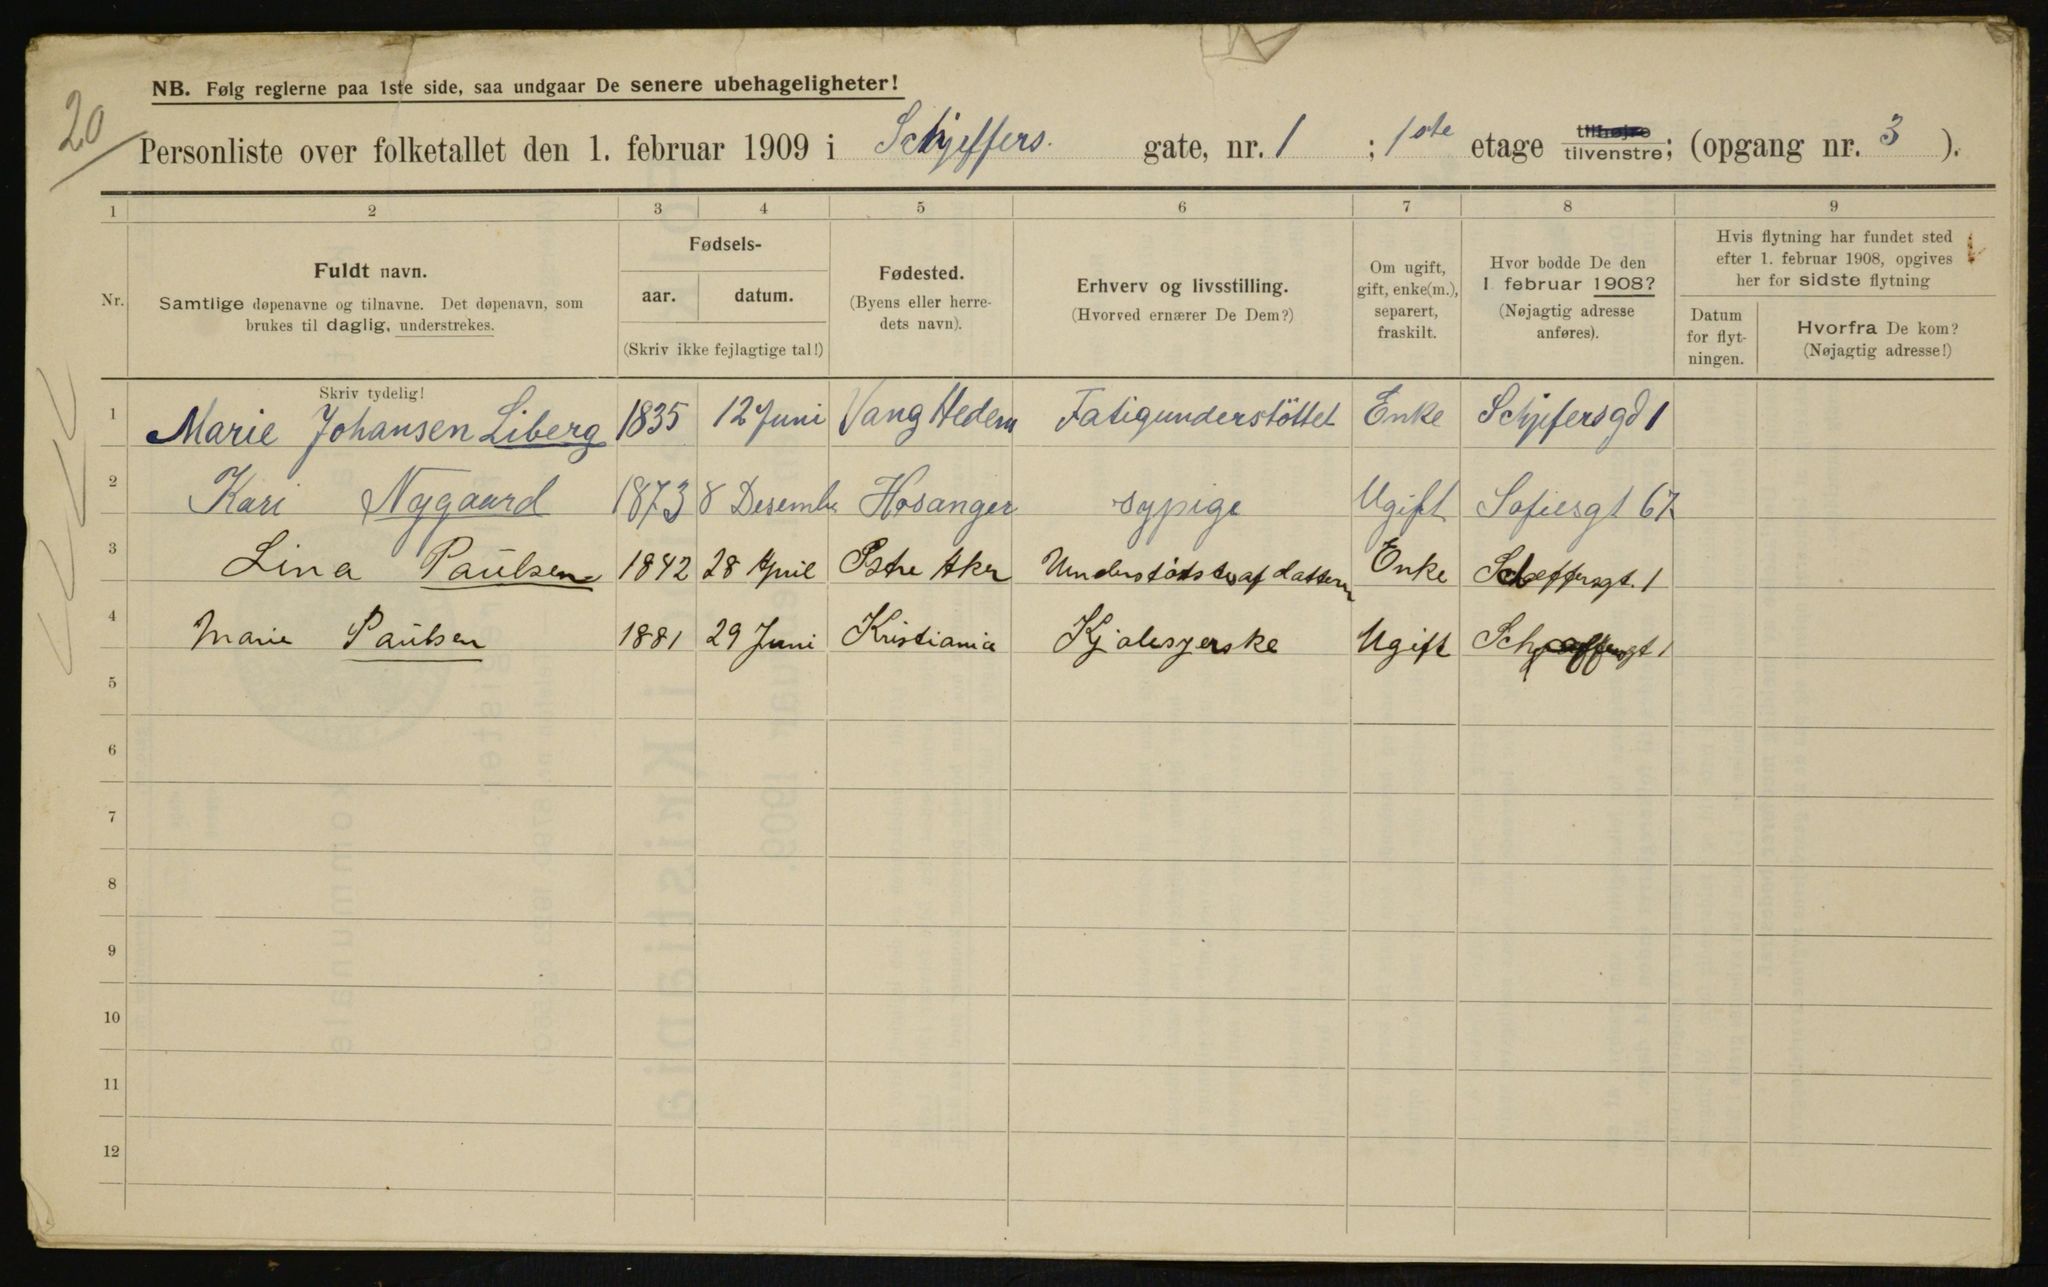 20
NB. Følg reglerne paa 1ste side, saa undgaar De senere ubehageligheter!
Personliste over folketallet den 1. februar 1909 i Schjeffers. gate, nr. 1 ; 1ste etage tilhøjre tilvenstre; (opgang nr. 3 ).
1 2 3 4 5 6 7 8 9
Nr.
Fuldt navn.
Samtlige døpenavne og tilnavne. Det døpenavn, som
brukes til daglig, understrekes.
Fødsels-
aar. datum.
(Skriv ikke fejlagtige tal!)
Fødested.
(Byens eller herre-
dets navn).
Erhverv og livsstilling.
(Hvorved ernærer De Dem?)
Om ugift,
gift, enke(m.),
separert,
fraskilt.
Hvor bodde De den
1. februar 1908?
(Nøjagtig adresse
anføres).
Hvis flytning har fundet sted
efter 1. februar 1908, opgives
her for sidste flytning
Datum
for flyt-
ningen.
Hvorfra De kom?
(Nøjagtig adresse!)
Skriv tydelig!
1 Marie Johansen Liberg 1835 12 Juni Vang Hedem Fatigunderstöttet Enke Schjefersgd 1
2 Kari Nygaard 1873 8 Desembr Hosanger sypige Ugift Sofiesgt 67
3 Lina Paulsen 1842 28 April Østre Aker Understøtstes af datteren Enke Scheffersgt. 1
4 Marie Paulsen 1881 29 Juni Kristiania Kjolesyerske Ugift 1
5
6
7
8
9
10
11
12